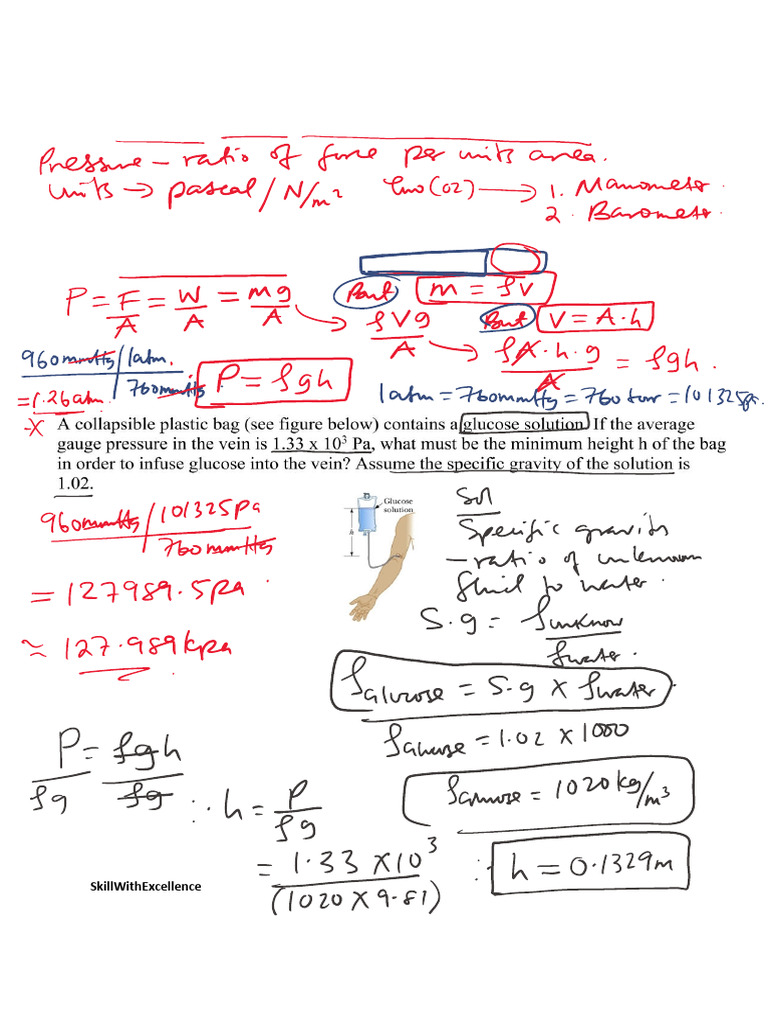 Pressure – ratio of force per units area.
Units → pascal / N/m²
(02) → 1. Manometer.
2. Barometer.
P = F/A = W/A = mg/A
But m = ρV
→ ρVg/A
But V = A·h
→ ρA·h·g/A = ρgh.
960mmHg / 1atm.
760mmHg
= 1.26atm.
P = ρgh
1atm = 760mmHg = 760torr = 101325pa.
A collapsible plastic bag (see figure below) contains a glucose solution. If the average
gauge pressure in the vein is 1.33 x 10³ Pa, what must be the minimum height h of the bag
in order to infuse glucose into the vein? Assume the specific gravity of the solution is
1.02.
960mmHg / 101325Pa
760mmHg
= 127989.5pa
≈ 127.989kpa
Glucose
solution
h
Sol
Specific gravity
– ratio of unknown
fluid to water.
S.g = ρunknow
ρwater.
ρglucose = S.g × ρwater.
ρglucose = 1.02 × 1000
ρglucose = 1020kg/m³
P = ρgh
ρg ρg
∴ h = P
ρg
= 1.33 × 10³
(1020 × 9.81)
∴ h = 0.1329m
SkillWithExcellence